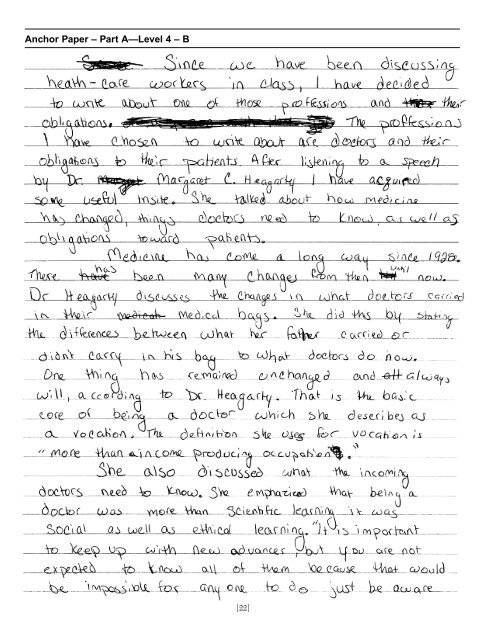 Anchor Paper – Part A—Level 4 – B
Since we have been discussing
heath-care workers in class, I have decided
to write about one of those proffessions and their
obligations. The proffessions
I have chosen to write about are doctors and their
obligations to their patients. After listening to a speech
by Dr. Margaret C. Heagarty I have acquired
some useful insite. She talked about how medicine
has changed, things doctors need to know, as well as
obligations toward patients.
Medicine has come a long way since 1928.
There has been many changes from then until now.
Dr Heagarty discusses the changes in what doctors carried
in their medical bags. She did this by stating
the differences between what her father carried or
didnt carry in his bag to what doctors do now.
One thing has remained unchanged and always
will, according to Dr. Heagarty. That is the basic
core of being a doctor which she describes as
a vocation. The definition she uses for vocation is
"more than a income producing occupation."
She also discussed what the incoming
doctors need to know. She emphazied that being a
doctor was more than scientific learning it was
social as well as ethical learning. "It is important
to keep up with new advances, but you are not
expected to know all of them because that would
be impossible for any one to do just be aware
[22]